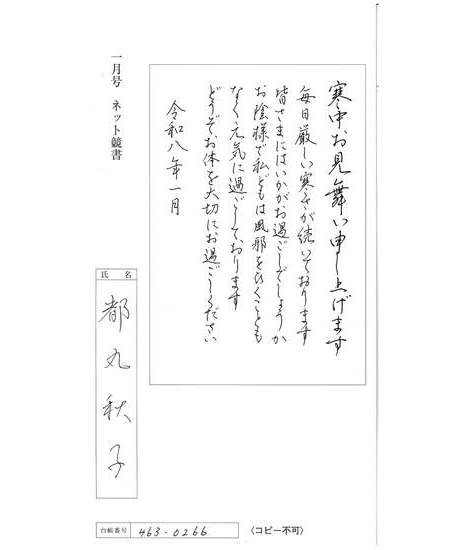 寒中お見舞い申し上げます
毎日厳しい寒さが続いております
皆さまにはいかがお過ごしでしょうか
お陰様で私どもは風邪をひくことも
なく元気に過ごしております
どうぞお体を大切にお過ごしください
令和八年一月
一月号 ネット競書
氏名
都丸秋子
台帳番号 463-0266
〈コピー不可〉